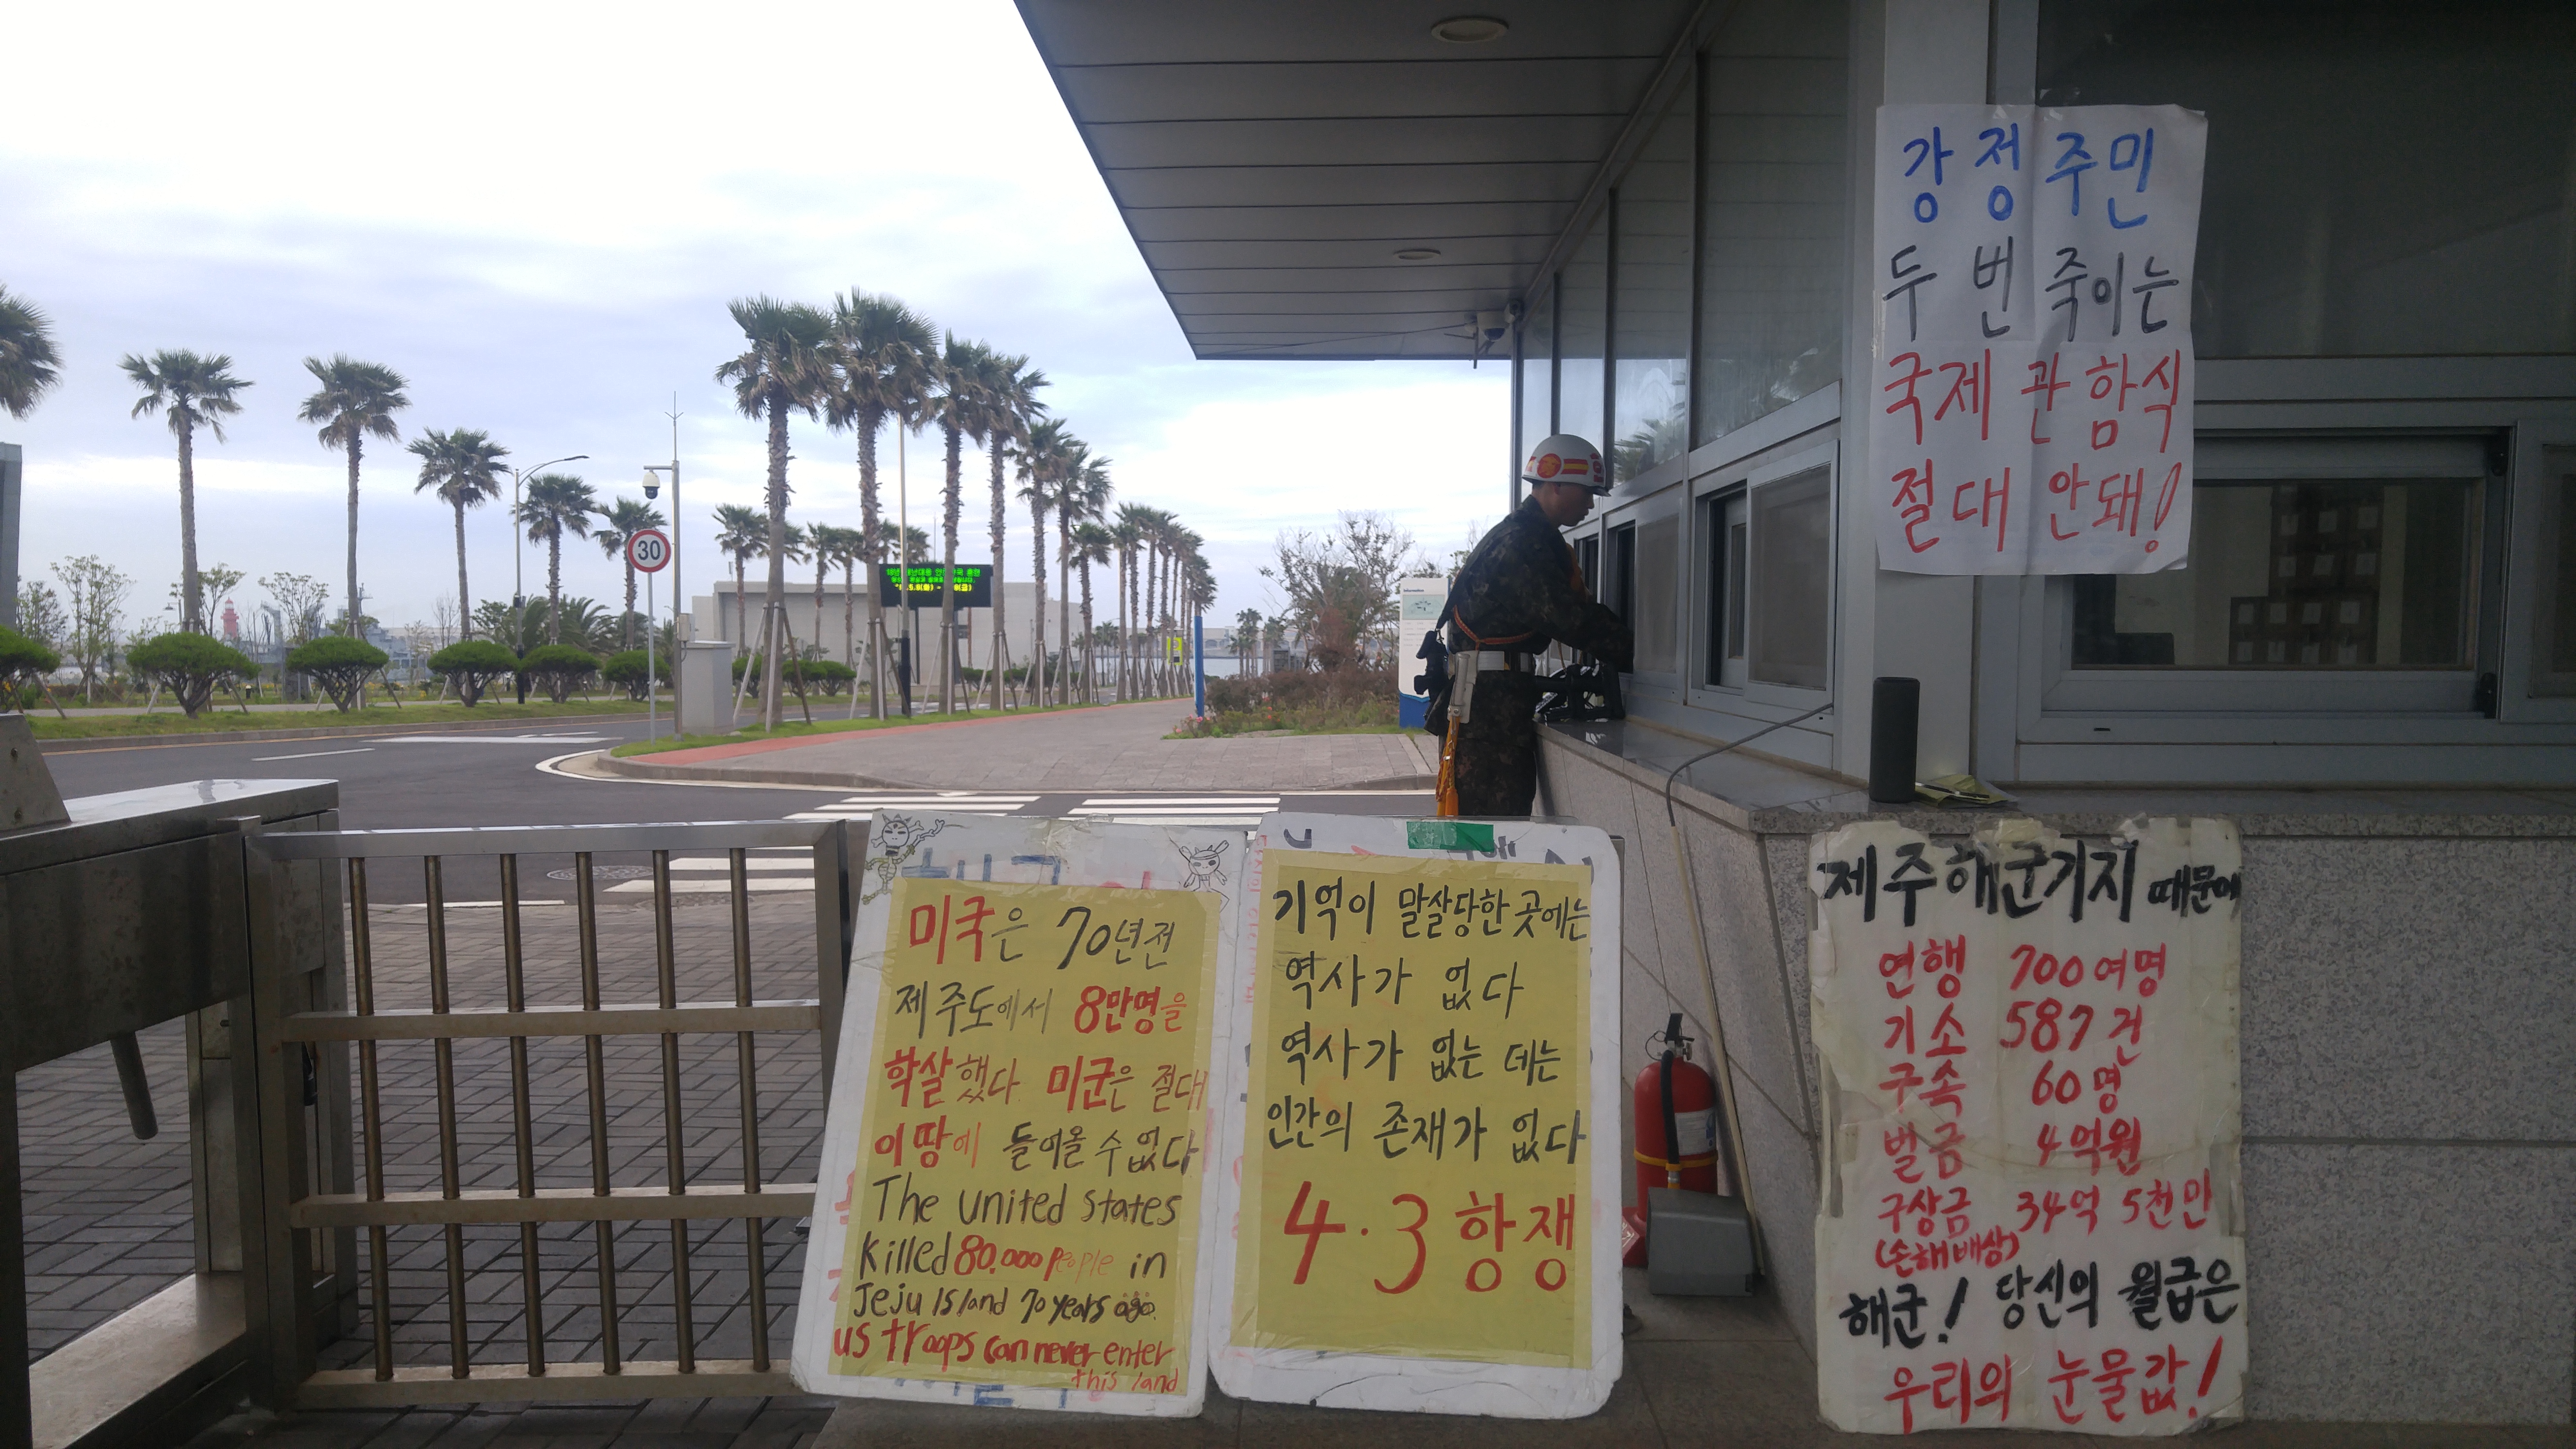 강정주민
두 번 죽이는
국제 관함식
절대 안돼!
30
미국은 70년전
제주도에서 8만명을
학살했다. 미군은 절대
이 땅에 들어올 수 없다
The United States
killed 80.000 people in
Jeju Island 70 years ago.
us troops can never enter
this land
기억이 말살당한 곳에는
역사가 없다
역사가 없는 데는
인간의 존재가 없다
4·3 항쟁
제주해군기지 때문에
연행 700여명
기소 587건
구속 60명
벌금 4억원
구상금 34억 5천만
(손해배상)
해군! 당신의 월급은
우리의 눈물값!